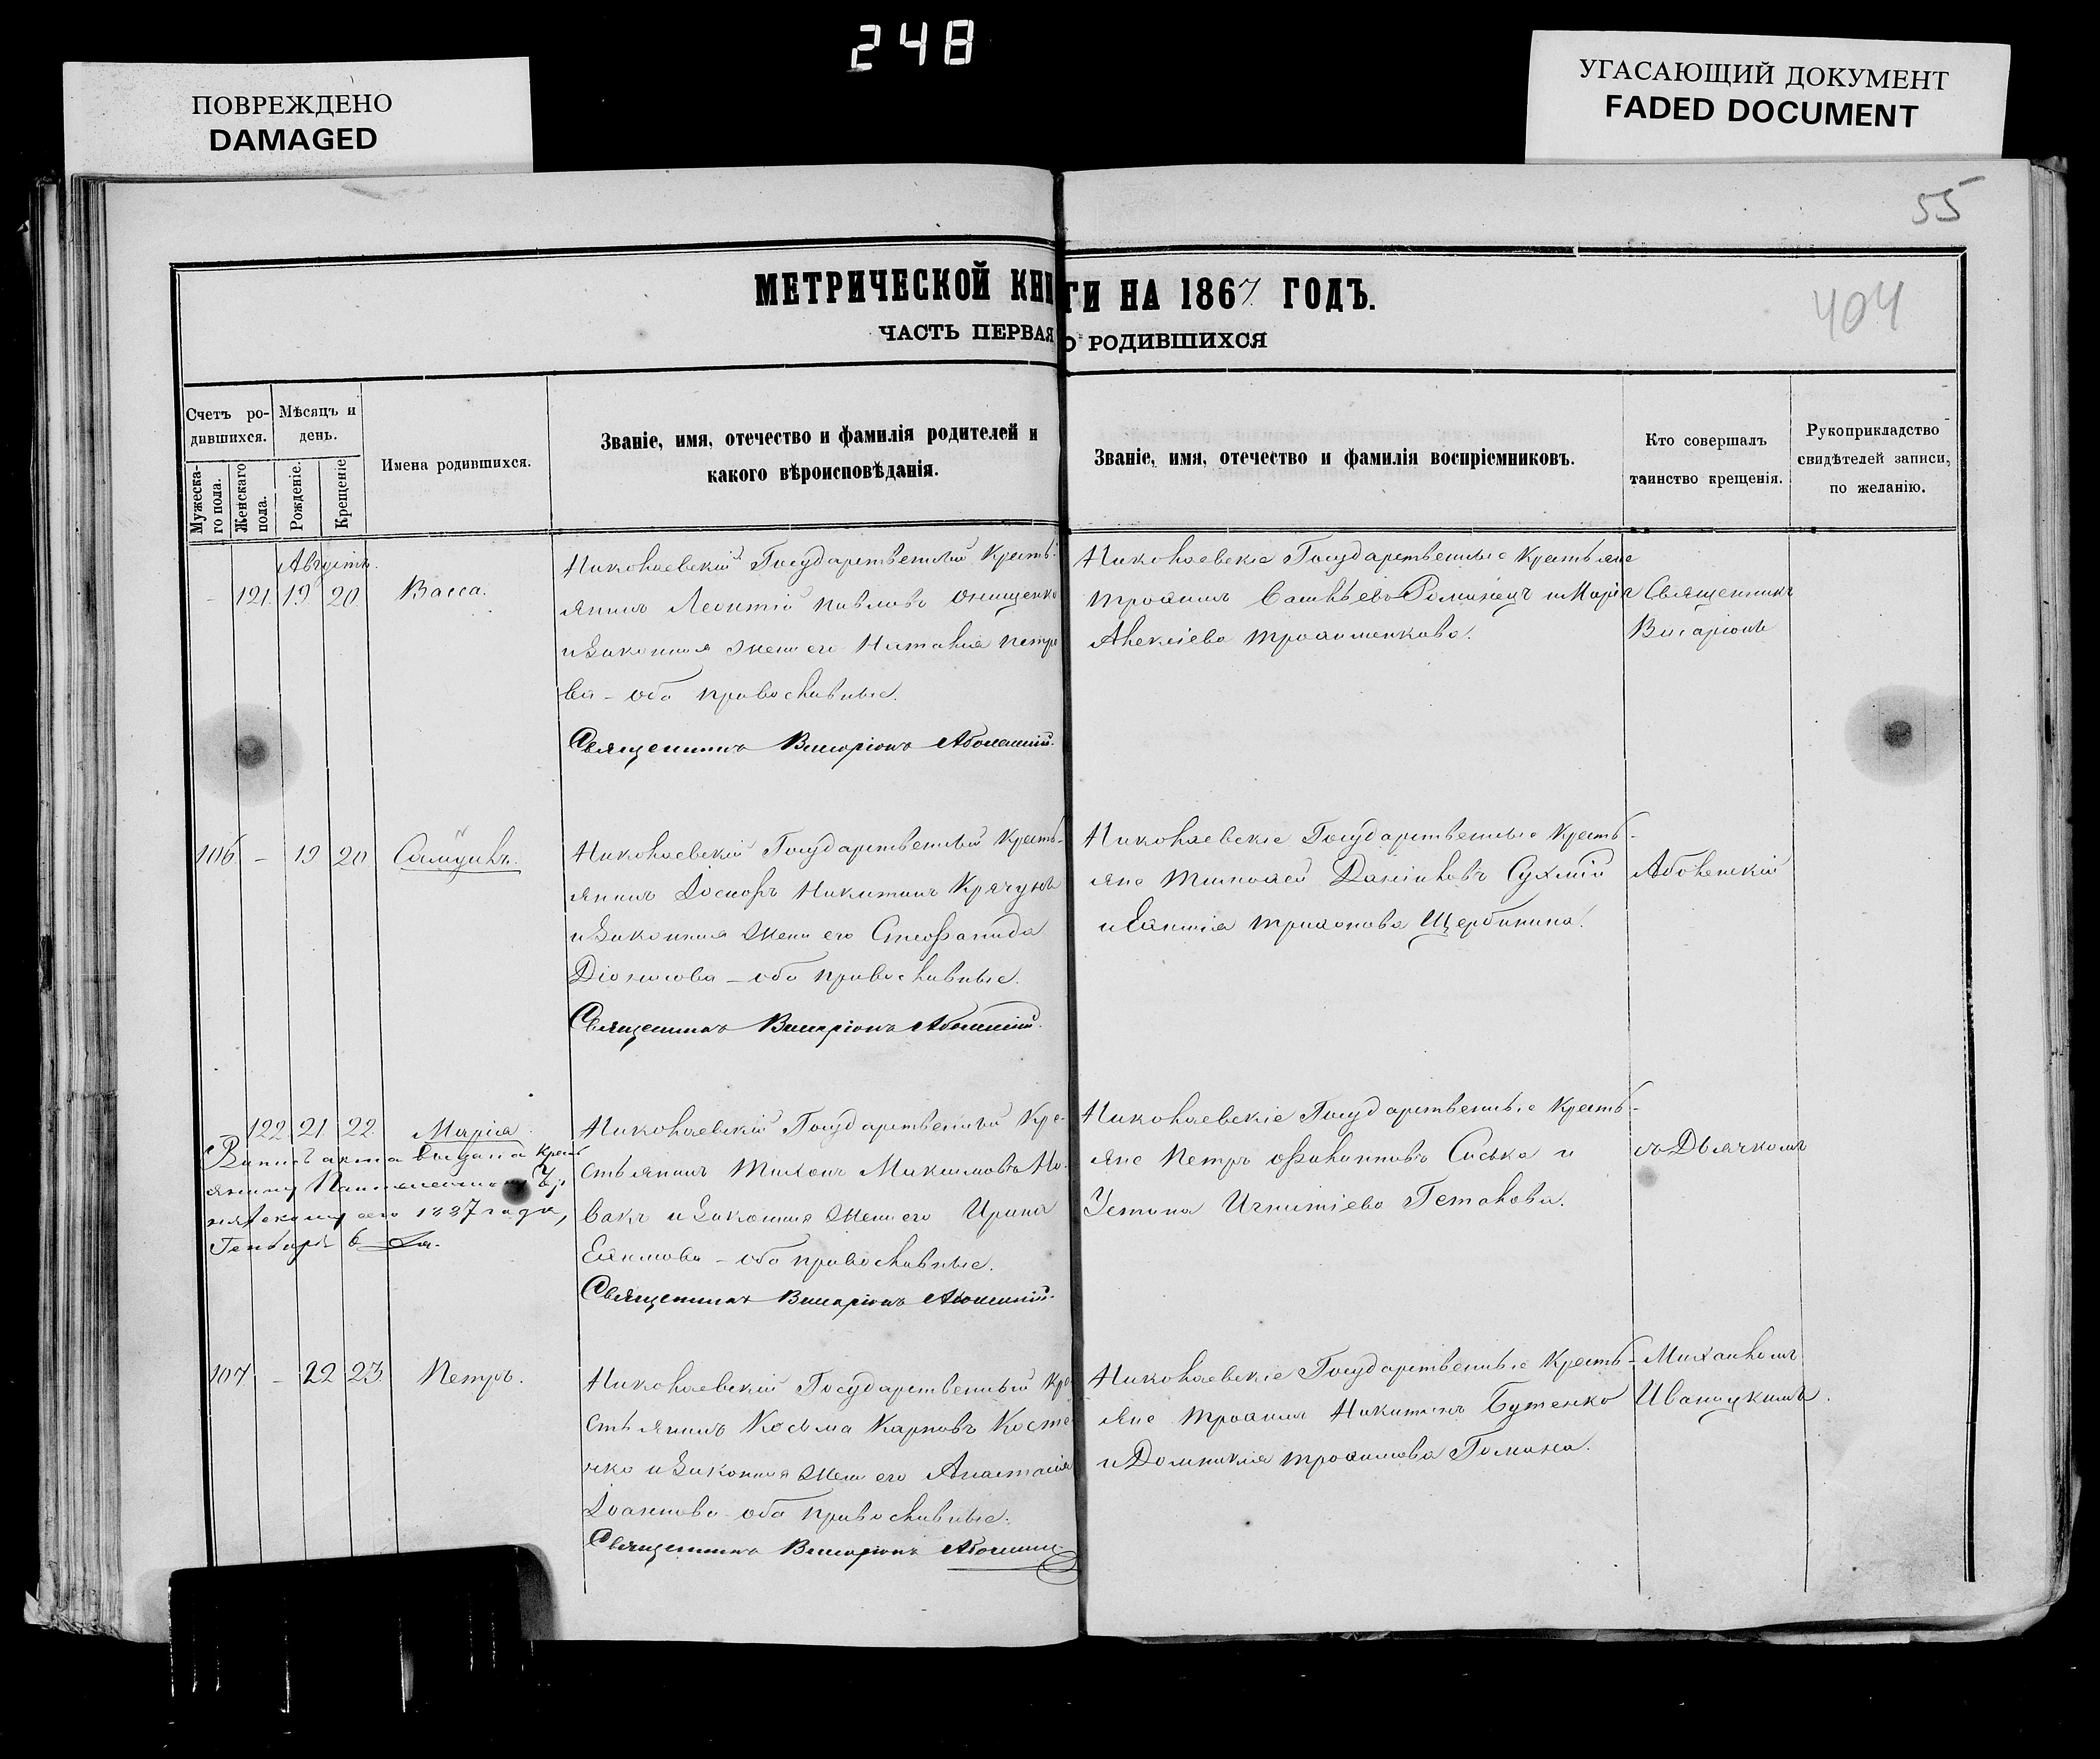 248
ПОВРЕЖДЕНО
DAMAGED
УГАСАЮЩИЙ ДОКУМЕНТ
FADED DOCUMENT
55
404
МЕТРИЧЕСКОЙ КНИГИ НА 1867 ГОДЪ.
ЧАСТЬ ПЕРВАЯ О РОДИВШИХСЯ
Счетъ ро-
дившихся.
Мужеска-
го пола.
Женскаго
пола.
Мѣсяцъ и
день.
Рожденіе.
Крещеніе
Имена родившихся.
Званіе, имя, отечество и фамилія родителей и
какого вѣроисповѣданія.
Званіе, имя, отечество и фамилія воспріемниковъ.
Кто совершалъ
таинство крещенія.
Рукоприкладство
свидѣтелей записи,
по желанію.
Августъ.
- 121. 19. 20. Васса.
Николаевскій Государственный Кресть-
янинъ Леонтій Павловъ Онищенко
и Законная жена его Наталія Петро
ва - оба православные.
Священникъ Виссаріонъ
Николаевскіе Государственные Крестьяне
Романецъ и Марія
Алексіева Трофименкова.
Священникъ
Виссаріонъ
106. - 19 20
Николаевскій Государственный Кресть-
янинъ Никитинъ Крячунъ
и Законная Жена его Стефанида
Діонисова - оба православные.
Священникъ Виссаріонъ
Николаевскіе Государственные Кресть-
яне Тимофей Даніиловъ Сухній
и Трифонова Щербинина.
122. 21. 22. Марія
Выпись акта выдана крест
янину
1887 года,
Генваря 6 дня.
Николаевскій Государственный Кре-
стьянинъ Тихонъ Максимовъ Но-
вакъ и Законная Жена его Ирина
Евфимова - оба православные.
Священникъ Виссаріонъ
Николаевскіе Государственные Кресть-
яне Петръ Сиська и
Устина Игнатіева
съ Дьячкомъ
107. - 22 23. Петръ.
Николаевскій Государственный Кре
стьянинъ Косьма Карповъ Косте
нко и Законная Жена его Анастасія
Іоаннова оба православные.
Священникъ Виссаріонъ
Николаевскіе Государственные Кресть-
яне Трофимъ Никитинъ Бутенко
и Домникія Трофимова Гомана.
Михаиломъ
Иваницкимъ.